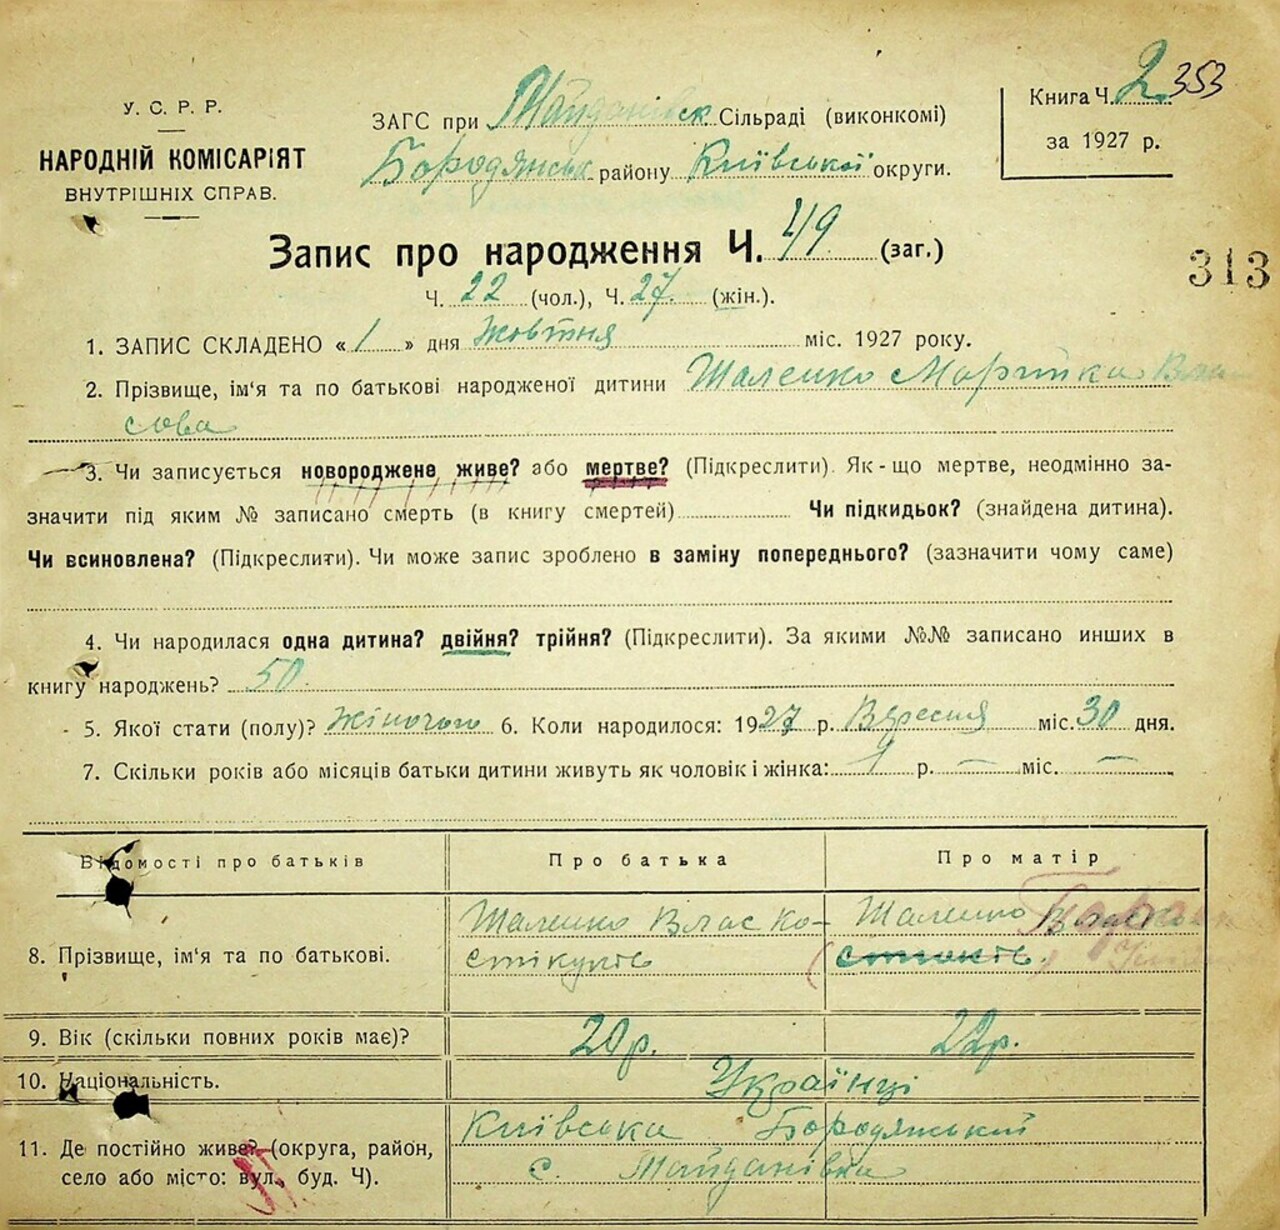 У. С. Р. Р.
НАРОДНІЙ КОМІСАРІЯТ
ВНУТРІШНІХ СПРАВ.
ЗАГС при Майданівск Сільраді (виконкомі)
Бородянськ району Київської округи.
Книга Ч. 2 353
за 1927 р.
Запис про народження Ч. 49 (заг.)
313
Ч. 22 (чол.), Ч. 27. (жін.).
1. ЗАПИС СКЛАДЕНО « 1 » дня Жовтня міс. 1927 року.
2. Прізвище, ім'я та по батькові народженої дитини Шаленко Марийка Вла
сова
3. Чи записується новороджене живе? або мертве? (Підкреслити). Як-що мертве, неодмінно за-
значити під яким № записано смерть (в книгу смертей) Чи підкидьок? (знайдена дитина).
Чи всиновлена? (Підкреслити). Чи може запис зроблено в заміну попереднього? (зазначити чому саме)
4. Чи народилася одна дитина? двійня? трійня? (Підкреслити). За якими №№ записано инших в
книгу народжень? 50.
5. Якої стати (полу)? Жіночого 6. Коли народилося: 1927 р. Вересня міс. 30 дня.
7. Скільки років або місяців батьки дитини живуть як чоловік і жінка: 1 р. — міс. —
Відомості про батьків Про батька Про матір
8. Прізвище, ім'я та по батькові. Шаленко Влас Ко- Шаленко
9. Вік (скільки повних років має)? 20р. 22р.
10. Національність. Українці
11. Де постійно живе? (округа, район, Київська Бородянський
село або місто: вул., буд. Ч). с. Майданівка